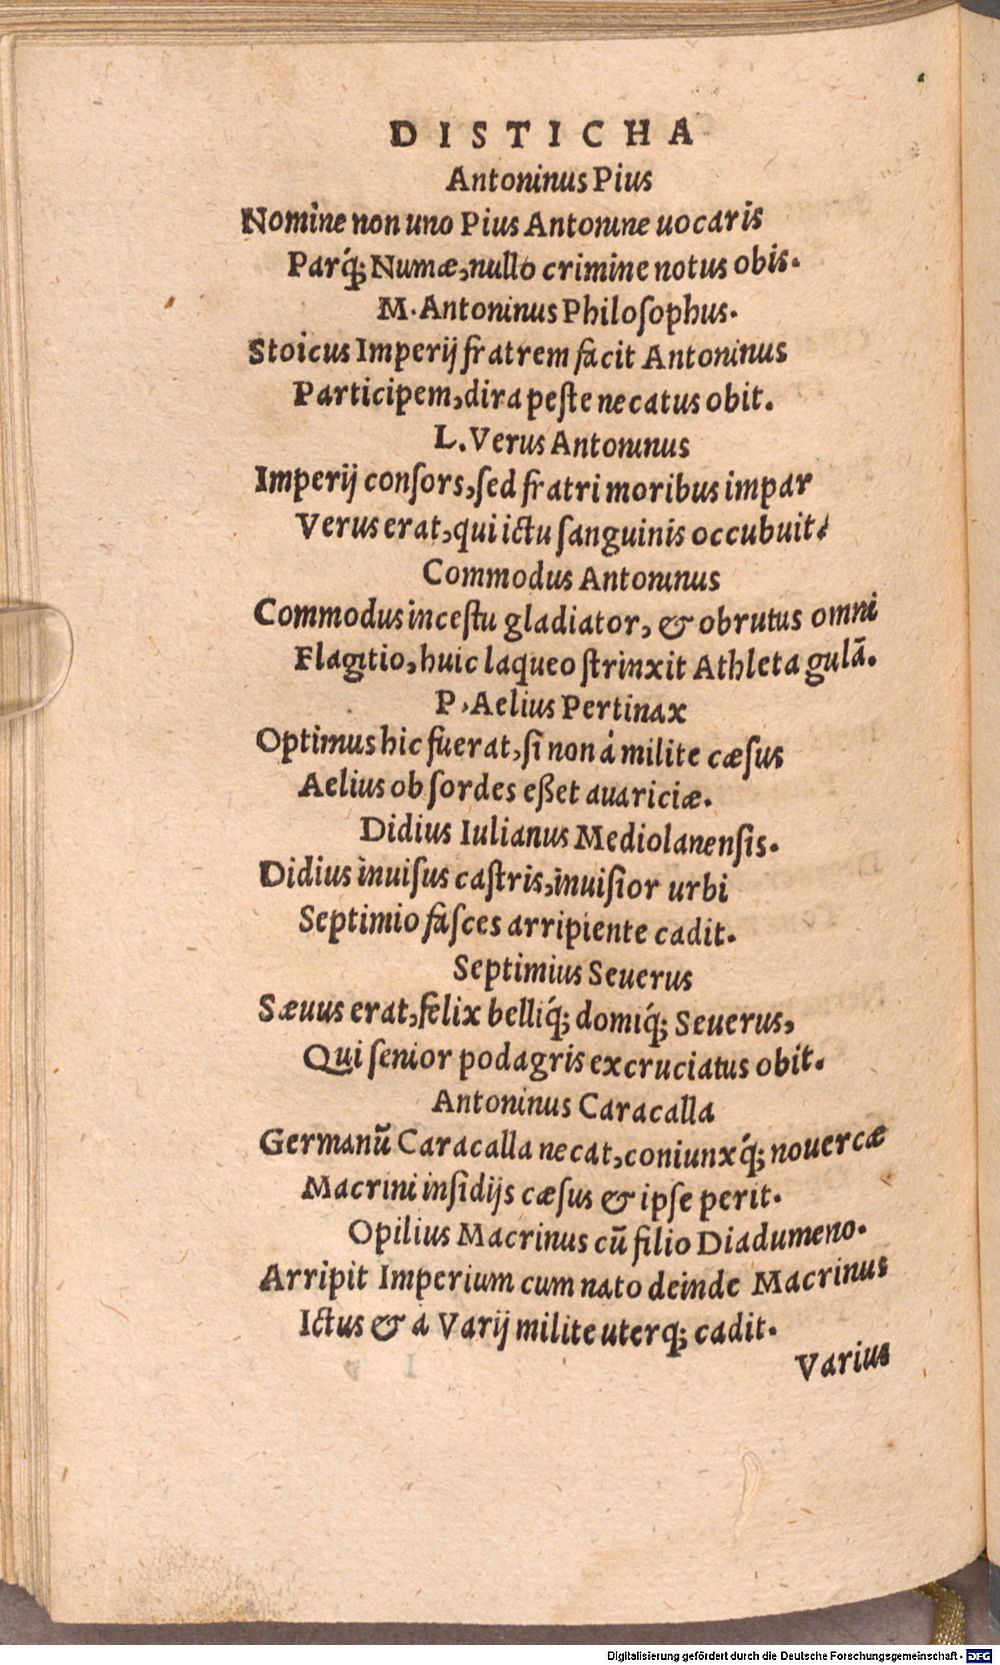 DISTICHA
Antoninus Pius
Nomine non uno Pius Antonine uocaris
Parq́; Numæ, nullo crimine notus obis.
M. Antoninus Philoſophus.
Stoicus Imperij fratrem facit Antoninus
Participem, dira peſte necatus obit.
L. Verus Antoninus
Imperij conſors, ſed fratri moribus impar
Verus erat, qui ictu ſanguinis occubuit.
Commodus Antoninus
Commodus inceſtu gladiator, & obrutus omni
Flagitio, huic laqueo ſtrinxit Athleta gulã.
P. Aelius Pertinax
Optimus hic fuerat, ſi non á milite cæſus
Aelius ob ſordes eßet auariciæ.
Didius Iulianus Mediolanenſis.
Didius inuiſus caſtris, inuiſior urbi
Septimio faſces arripiente cadit.
Septimius Seuerus
Sæuus erat, felix belliq́; domiq́; Seuerus,
Qui ſenior podagris excruciatus obit.
Antoninus Caracalla
Germanũ Caracalla necat, coniunxq́; nouercæ
Macrini inſidijs cæſus & ipſe perit.
Opilius Macrinus cũ filio Diadumeno.
Arripit Imperium cum nato deinde Macrinus
Ictus & a Varij milite uterq; cadit.
Varius
Digitalisierung gefördert durch die Deutsche Forschungsgemeinschaft - DFG